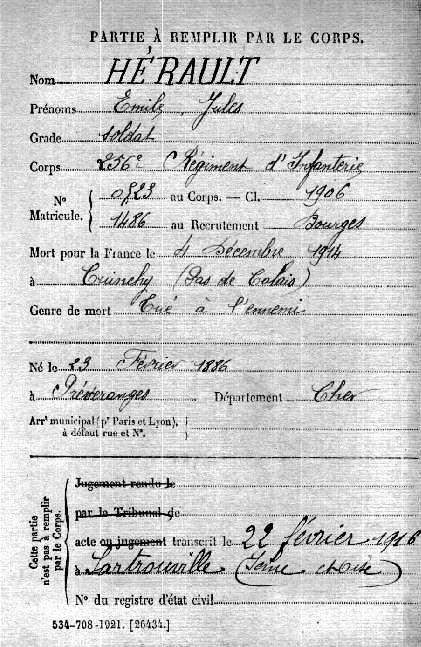 PARTIE À REMPLIR PAR LE CORPS.
Nom HÉRAULT
Prénoms Emile, Jules
Grade soldat
Corps 256e Régiment d'Infanterie
N° Matricule. { 0523 au Corps. — Cl. 1906
1486 au Recrutement Bourges
Mort pour la France le 4 Décembre 1914
à Cuinchy (Pas de Calais)
Genre de mort Tué à l'ennemi
Né le 23 Février 1886
à Préveranges Département Cher
Arrt municipal (pr Paris et Lyon), à défaut rue et N°.
Cette partie n'est pas à remplir par le Corps.
Jugement rendu le
par le Tribunal de
acte ou jugement transcrit le 22 février 1916
à Sartrouville (Seine et Oise)
N° du registre d'état civil
534-708-1921. [26434.]